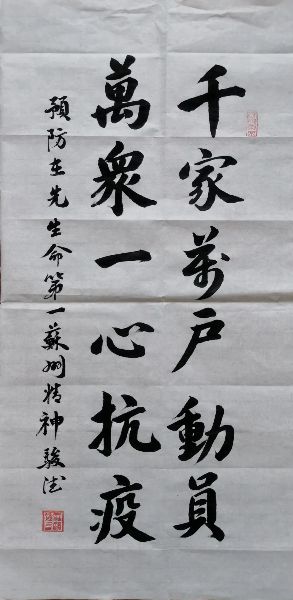 千家萬户動員
萬眾一心抗疫
預防在先生命第一蘇州精神駿德